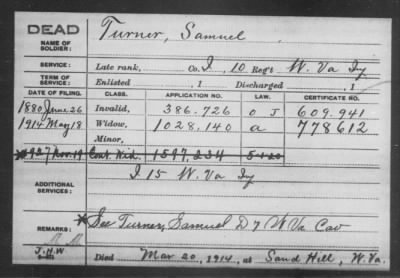 DEAD
NAME OF SOLDIER: Turner, Samuel
SERVICE: Late rank, Co. I, 10 Reg't W. Va Inf
TERM OF SERVICE: Enlisted , 1 Discharged , 1
DATE OF FILING. CLASS. APPLICATION NO. LAW. CERTIFICATE NO.
1880 June 26 Invalid, 386.726 O J 609.941
1914 May 18 Widow, 1028,140 a 778612
Minor,
1927 Nov. 19 Cont. Wid. 1597,234 5-1-20
ADDITIONAL SERVICES: I 15 W. Va Inf
REMARKS: *See Turner, Samuel D 7 W Va Cav
J.H.W
Died Mar 20, 1914, at Sand Hill, W. Va.